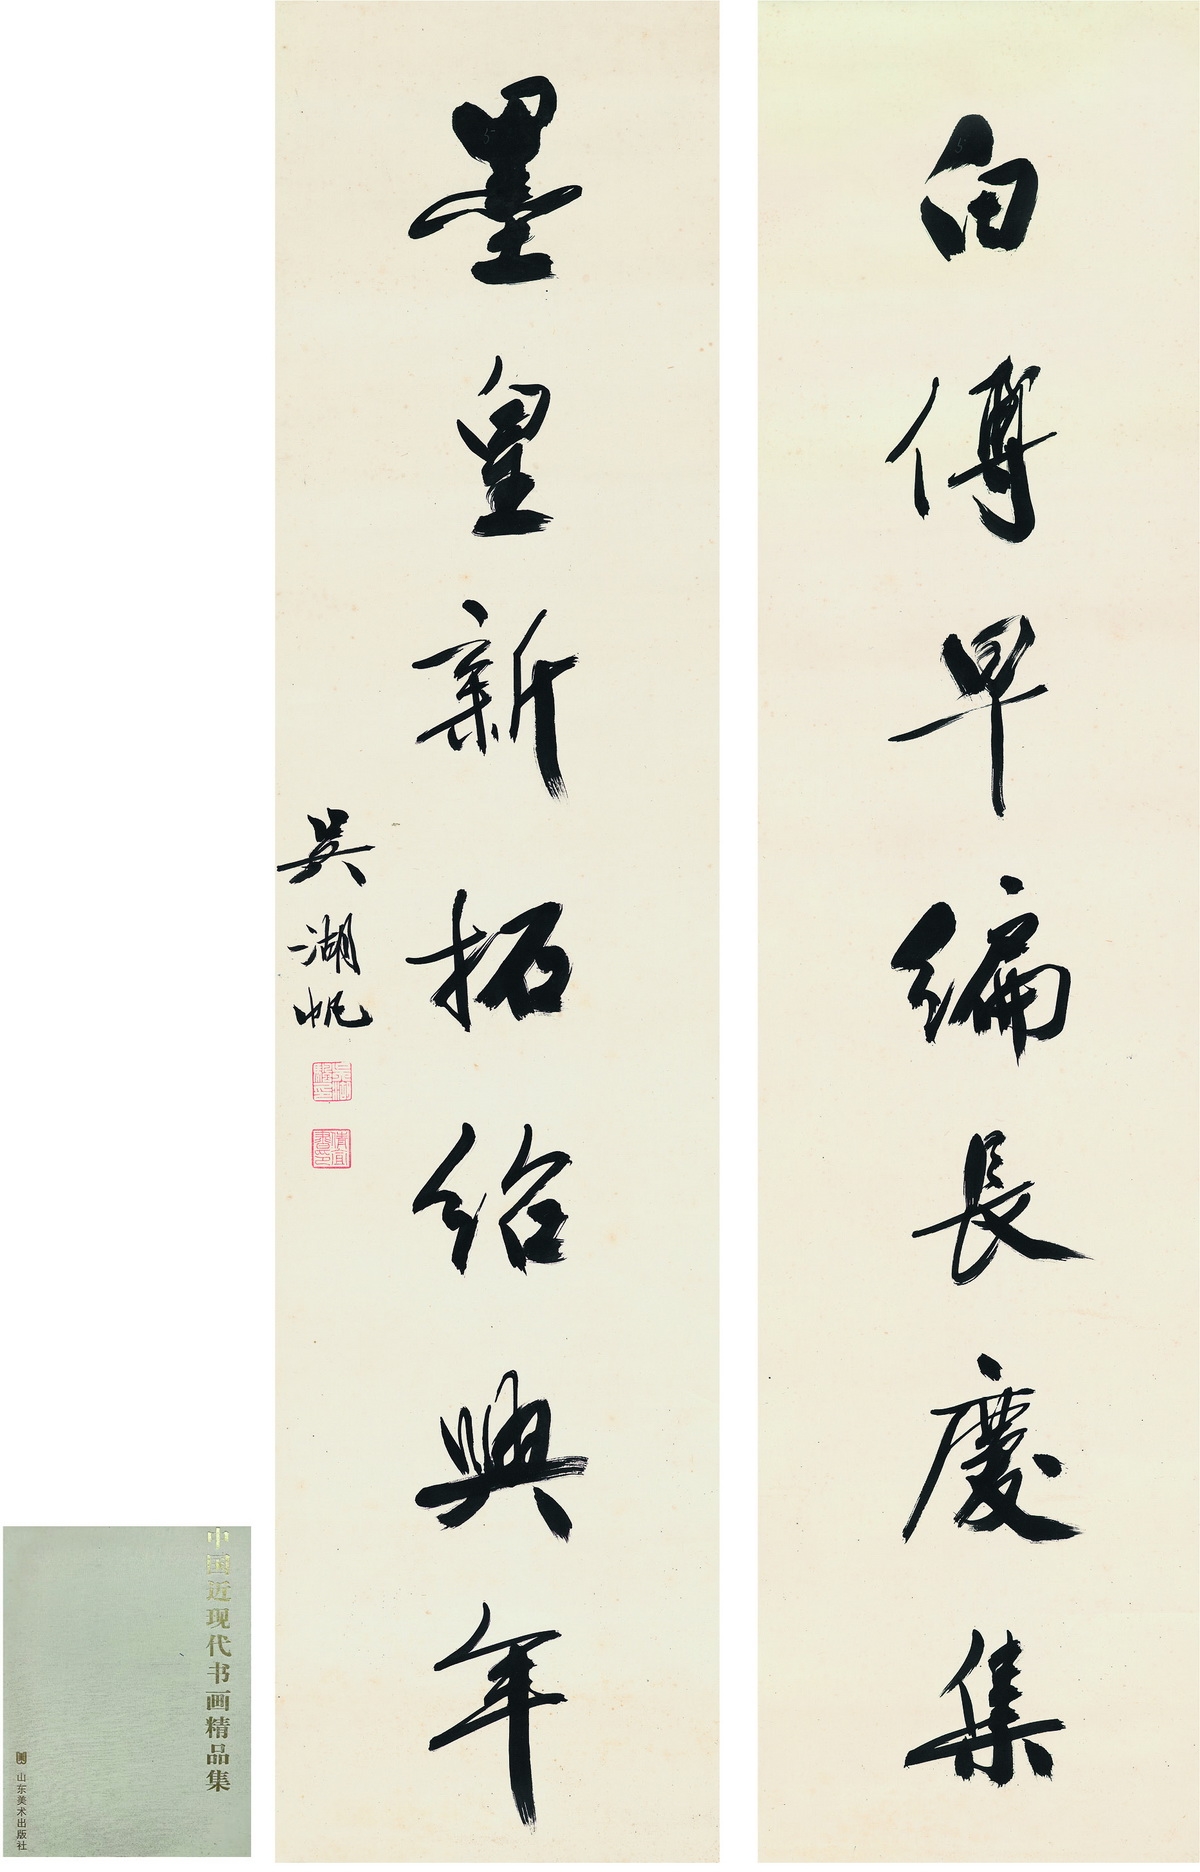 白傅早編長慶集
墨皇新拓紹興年
吳湖帆
中国近现代书画精品集
山东美术出版社